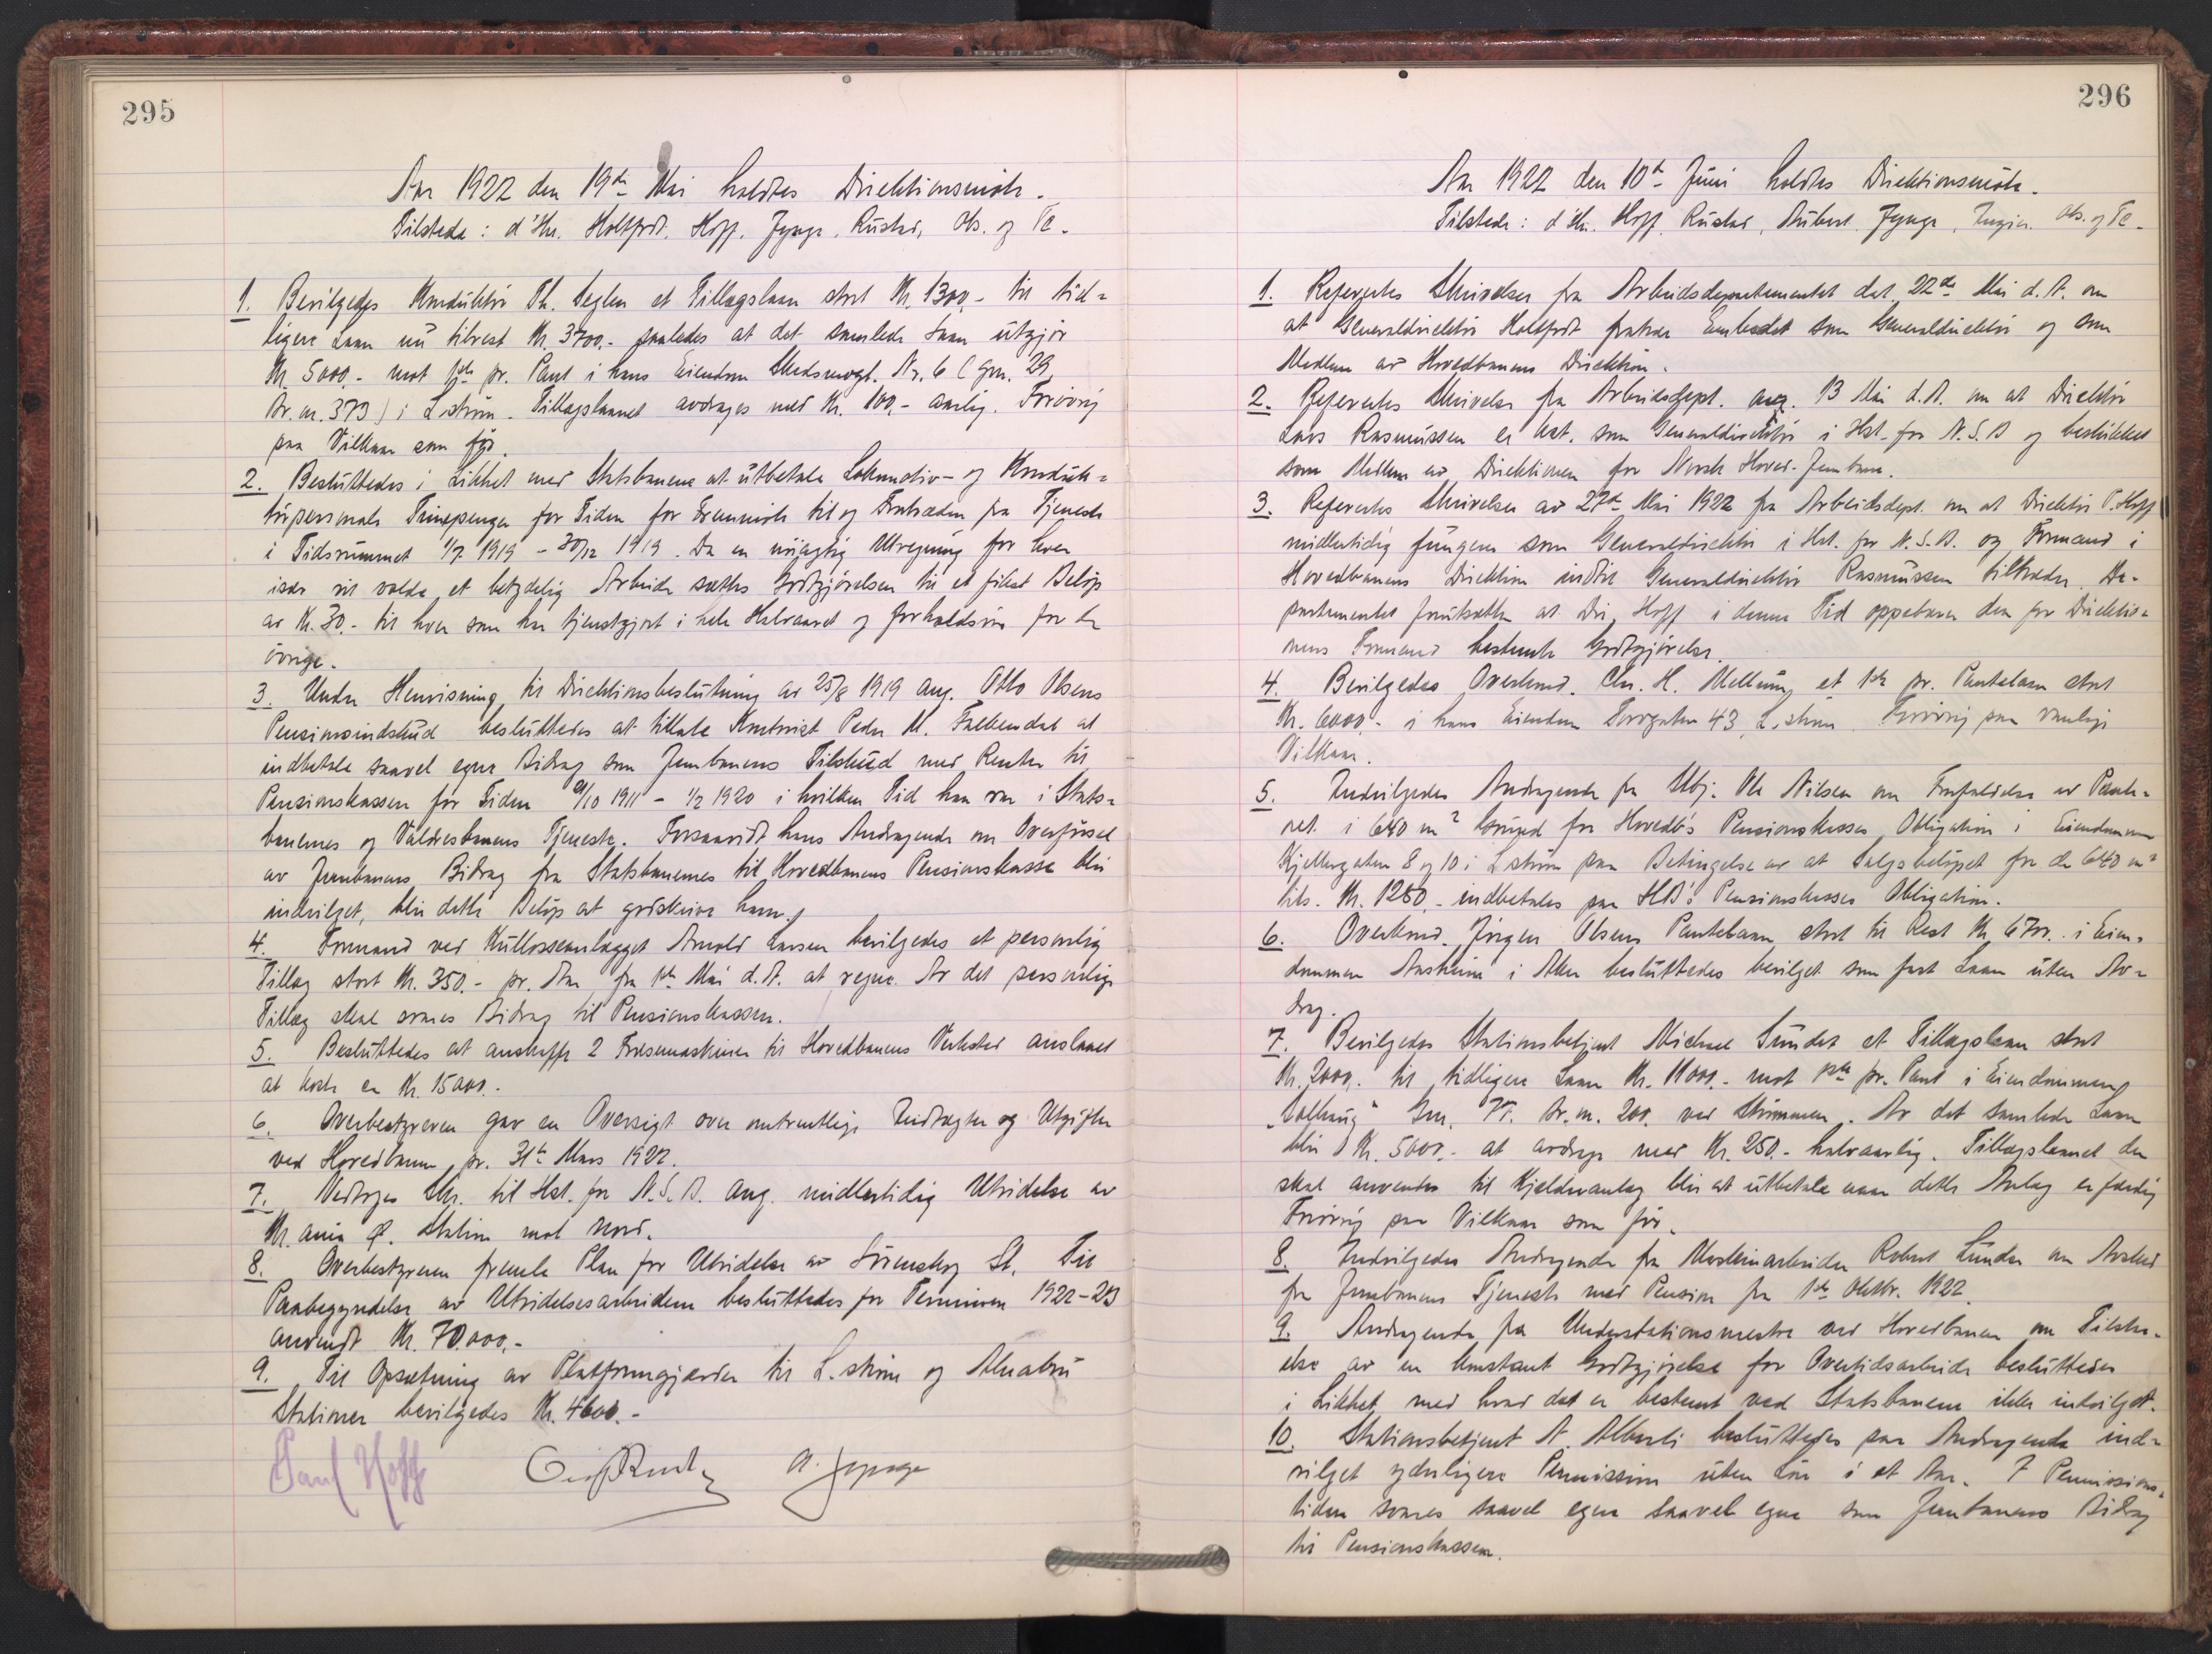 295
Aar 1922 den 19de Mai holdtes Direktionsmöte.
Tilstede: d'Hrr. Holtfodt. Hoff. Jynge. Rustad, Obs. og Te.
1. Bevilgedes Konduktör Th. Seglen et Tillægslaan stort Kr. 1300,- til tid-
ligere Laan nu tilrest Kr. 3700.- saaledes at det samlede Laan utgjør
Kr. 5000.- mot 1ste pr. Pant i hans Eiendom Skedsmogt. Nr. 6 (Gnr. 29,
Br. nr. 373) i L.ström. Tillægslaanet avdrages med Kr. 100,- aarlig. Forövrig
paa Vilkaar som för.
2. Besluttedes i Likhet med Statsbanene at utbetale Lokomotiv- og Konduk-
törpersonale Timepenger for Tiden for Fremmöte til og Fratræden fra Tjeneste
i Tidsrummet 1/7 1919 - 30/12 1919. Da en nöiagtig Utregning for hver
især vil volde et betydelig Arbeide sættes Godtgjörelsen til et fikst Belöp
av Kr. 30.- til hver som har tjenstgjort i hele Halvaaret og forholdsvis for de
övrige.
3. Under Henvisning til Direktionsbeslutning av 25/8 1919 ang. Otto Olsens
Pensionsindskud besluttedes at tillate Kontorist Peder M. Falkendal at
indbetale saavel egne Bidrag som Jernbanens Tilskud med Renter til
Pensionskassen for Tiden /10 1911 - 1/2 1920 i hvilken Tid han var i Stats-
banernes og Valdresbanens Tjeneste. Forsaavidt hans Andragende om Overförsel
av Jernbanens Bidrag fra Statsbanernes til Hovedbanens Pensionskasse blir
indvilget, blir dette Belöp at godskrive ham.
4. Formand ved Kullosseanlægget Arnold Larsen bevilgedes et personlig
Tillæg stort Kr. 350.- pr. Aar fra 1ste Mai d.A. at regne. Av det personlige
Tillæg skal svares Bidrag til Pensionskassen.
5. Besluttedes at anskaffe 2 Fræsemaskiner til Hovedbanens Verksted anslaaet
at koste ca Kr. 15000.-
6. Overbestyreren gav en Oversigt over omtrentlige Indtægter og Utgifter
ved Hovedbanen pr. 31te Mars 1922.
7. Vedtoges Skr. til Hst. for N.S.B. ang. midlertidig Utvidelse av
Kr.ania Ø. Station mot Nord.
8. Overbestyreren fremla Plan for Utvidelse av Lörenskog St. Til
Paabegyndelse av Utvidelsesarbeidene besluttedes for Terminen 1922-23
anvendt Kr. 70.000,-
9. Til Opsætning av Platformgjærder til L.ström og Alnabru
Stationer bevilgedes Kr. 4600.-
Paul Hoff
A. Jynge
296
Aar 1922 den 10de Juni holdtes Direktionsmöte.
Tilstede: d'Hr. Hoff, Rustad, Aubert, Jynge, Obs. og Te.
1. Refererte Skrivelse fra Arbeidsdepartementet dat. 22de Mai d.A. om
at Generaldirektör Holtfodt fratrær Embedet som Generaldirektör og som
Medlem av Hovedbanens Direktion.
2. Refererte Skrivelse fra Arbeidsdept. ang. 13 Mai d.A. om at Direktör
Lars Rasmussen er kst. som Generaldirektör i Hst. for N.S.B og beskikket
som Medlem av Direktionen for Norsk Hoved-Jernbane.
3. Refererte Skrivelse av 27de Mai 1922 fra Arbeidsdept. om at Direktör P. Hoff
midlertidig fungerer som Generaldirektör i Hst. for N.S.B. og Formand i
Hovedbanens Direktion indtil Generaldirektör Rasmussen tiltræder. De-
partementet forutsætter at Dir. Hoff i denne Tid oppebærer den for Direktio-
nens Formand bestemte Godtgjörelse.
4. Bevilgedes Overkond. Chr. H. Mellum et 1ste pr. Pantelaan stort
Kr. 6000.- i hans Eiendom Torvgaten 43, L.ström. Forövrig paa vanlige
Vilkaar.
5. Indvilgedes Andragende fra Ole Nilsen om Frafaldelse av Pante-
ret i 640 m² Grund for Hovedb's Pensionskasses Obligation i Eiendommen
Kjellergaten 8 og 10 i L.ström paa Betingelse av at Salgsbelöpet for de 640 m²
Kr. 1280.- indbetales paa HB's Pensionskasses Obligation.
6. Overkond. Jörgen Olsens Pantelaan stort til Rest Kr. 6700.- i Eien-
dommen i Aker besluttedes bevilget som fast Laan uten Av-
drag.
7. Bevilgedes Stationsbetjent Michael Sundet et Tillægslaan stort
Kr. 2000.- til tidligere Laan Kr. 11000.- mot 1ste pr. Pant i Eiendommen
"Solhaug" Gnr. 75. Br. nr. 200. ved Strömmen. Av det samlede Laan
blir Kr. 5000.- at avdrage med Kr. 250.- halvaarlig. Tillægslaanet der
skal anvendes til Kjelderanlæg blir at utbetale naar dette Anlæg er færdig
Forövrig paa Vilkaar som för.
8. Indvilgedes Andragende fra Maskinarbeider Robert Lunder om Avsked
fra Jernbanens Tjeneste med Pension fra 1ste Oktbr. 1922.
9. Andragende fra Understationsmestre ved Hovedbanen om Tilstaa-
else av en konstant Godtgjörelse for Overtidsarbeide besluttedes
i Likhet med hvad det er bestemt ved Statsbanene ikke indvilget.
10. Stationsbetjent A. Alberti besluttedes paa Andragende ind-
vilget yderligere Permission uten Lön i et Aar. I Permissions-
tiden svares saavel egne saavel egne som Jernbanens Bidrag
til Pensionskassen.